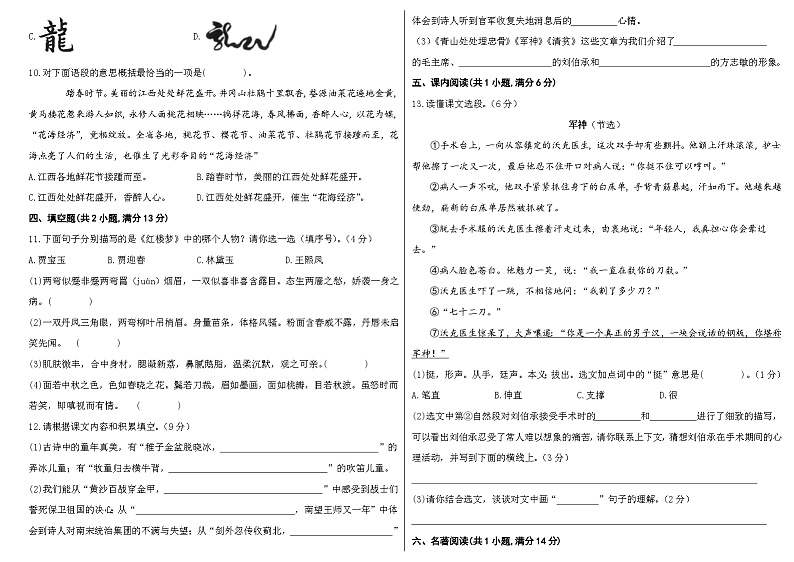 C.龍 D.龍
10.对下面语段的意思概括最恰当的一项是( )。
踏春时节。美丽的江西处处鲜花盛开。井冈山杜鹃十里飘香,婺源油菜花遍地金黄,
黄马楼花惹来游人如织,永修人面桃花相映……徜徉花海,春风拂面,香醉人心,以花为媒,
“花海经济”,竞相绽放。全省各地,桃花节、樱花节、油菜花节、杜鹃花节接踵而至,花
海点亮了人们的生活,也催生了光彩夺目的“花海经济”
A.江西各地鲜花节接踵而至。 B.踏春时节,美丽的江西处处鲜花盛开。
C.江西处处鲜花盛开,香醉人心。 D.江西处处鲜花盛开,催生“花海经济”。
四、填空题(共2小题,满分13分)
11.下面句子分别描写的是《红楼梦》中的哪个人物?请你选一选(填序号)。(4分)
A.贾宝玉 B.贾迎春 C.林黛玉 D.王熙凤
(1)两弯似蹙非蹙两弯罥(juàn)烟眉,一双似喜非喜含露目。态生两靥之愁,娇袭一身之
病。( )
(2)一双丹凤三角眼,两弯柳叶吊梢眉。身量苗条,体格风骚。粉面含春威不露,丹唇未启
笑先闻。 ( )
(3)肌肤微丰,合中身材,腮凝新荔,鼻腻鹅脂,温柔沉默,观之可亲。( )
(4)面若中秋之色,色如春晓之花。鬓若刀裁,眉如墨画,面如桃瓣,目若秋波。虽怒时而
若笑,即嗔视而有情。 ( )
12.请根据课文内容和积累填空。(9分)
(1)古诗中的童年真美,有“稚子金盆脱晓冰,________”的
弄冰儿童;有“牧童归去横牛背,________”的吹笛儿童。
(2)我们能从“黄沙百战穿金甲,________”中感受到战士们
誓死保卫祖国的决心;从“________,南望王师又一年”中体
会到诗人对南宋统治集团的不满与失望;从“剑外忽传收蓟北,________”
体会到诗人听到官军收复失地消息后的________心情。
(3)《青山处处埋忠骨》《军神》《清贫》这些文章为我们介绍了________
的毛主席、________的刘伯承和________的方志敏的形象。
五、课内阅读(共1小题,满分6分)
13.读懂课文选段。(6分)
军神(节选)
①手术台上,一向从容镇定的沃克医生,这次双手却有些颤抖。他额上汗珠滚滚,护士
帮他擦了一次又一次,最后他忍不住开口对病人说:“你挺不住可以哼叫。”
②病人一声不吭,他双手紧紧抓住身下的白床单,手背青筋暴起,汗如雨下。他越来越
使劲,崭新的白床单居然被抓破了。
③脱去手术服的沃克医生擦着汗走过来,由衷地说:“年轻人,我真担心你会晕过
去。”
④病人脸色苍白。他勉力一笑,说:“我一直在数你的刀数。”
⑤沃克医生吓了一跳,不相信地问:“我割了多少刀?”
⑥“七十二刀。”
⑦沃克医生惊呆了,大声嚷道:“你是一个真正的男子汉,一块会说话的钢板,你堪称
军神!”
(1)挺,形声。从手,廷声。本义:拔出。选文加点词中的“挺”意思是( )。(1分)
A.笔直 B.伸直 C.支撑 D.很
(2)选文中第②自然段对刘伯承接受手术时的________和________进行了细致的描写,
可以看出刘伯承忍受了常人难以想象的痛苦,请你联系上下文,猜想刘伯承在手术期间的心
理活动,并写到下面的横线上。(3分)
(3)请你结合选文,谈谈对文中画“________”句子的理解。(2分)
六、名著阅读(共1小题,满分14分)